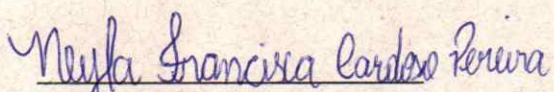 Neyla Francisca Cardoso Pereira